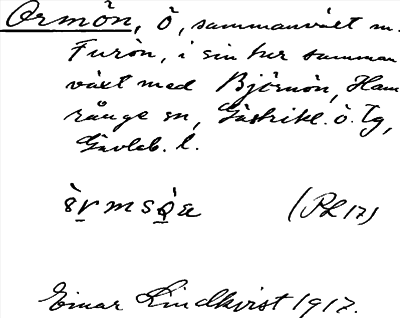 Ormön, ö, sammanväxt m.
Furön, i sin tur samman
växt med Björnön, Ham
rånge sn, Gästrikl. ö. Tg,
Gävleb. l.
(PL 17)
Einar Lindkvist 1917.